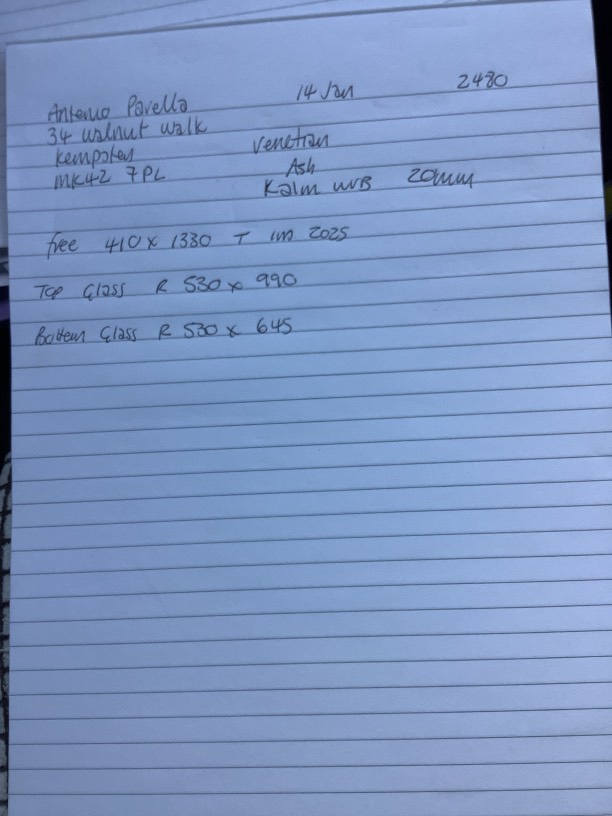 14 Jan 2480
Antonio Pavella
34 walnut walk
Kempsten
MK42 7PL
Venetian
Ash
Kalm WVB 20mm
free 410 x 1330 T 2025
Top Glass R 530 x 990
Bottom Glass R 530 x 645